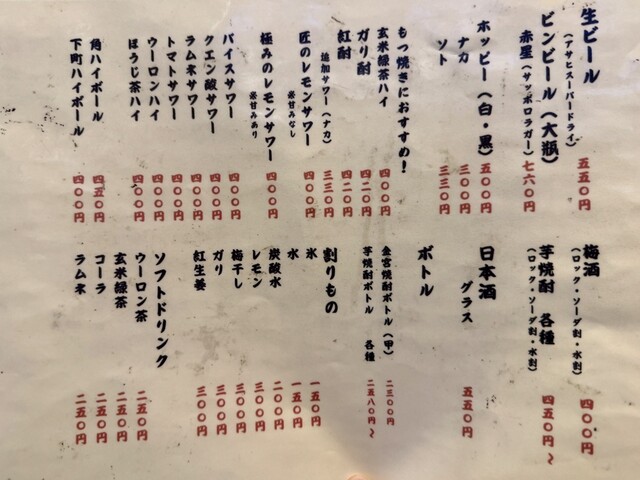 生ビール 五五〇円
(アサヒスーパードライ)
ビンビール(大瓶)
赤星(サッポロラガー) 七六〇円
ホッピー(白・黒) 五〇〇円
ナカ 三〇〇円
ソト 三三〇円
もつ焼きにおすすめ!
玄米緑茶ハイ 四〇〇円
ガリ酎 四二〇円
紅酎 四二〇円
追加サワー(ナカ) 三三〇円
匠のレモンサワー
※甘みなし
極みのレモンサワー 四〇〇円
※甘みあり
バイスサワー 四〇〇円
クエン酸サワー 四〇〇円
ラムネサワー 四〇〇円
トマトサワー 四〇〇円
ウーロンハイ 四〇〇円
ほうじ茶ハイ 四〇〇円
角ハイボール 四五〇円
下町ハイボール 四〇〇円
梅酒 四〇〇円
(ロック・ソーダ割・水割)
芋焼酎 各種 四五〇円~
(ロック・ソーダ割・水割)
日本酒
グラス 五五〇円
ボトル
金宮焼酎ボトル(甲) 二三〇〇円
芋焼酎ボトル 各種 二五八〇円~
割りもの
氷 一五〇円
水 一五〇円
炭酸水 二〇〇円
レモン 三〇〇円
梅干し 三〇〇円
ガリ 三〇〇円
紅生姜 三〇〇円
ソフトドリンク
ウーロン茶 二五〇円
玄米緑茶 二五〇円
コーラ 二五〇円
ラムネ 二五〇円